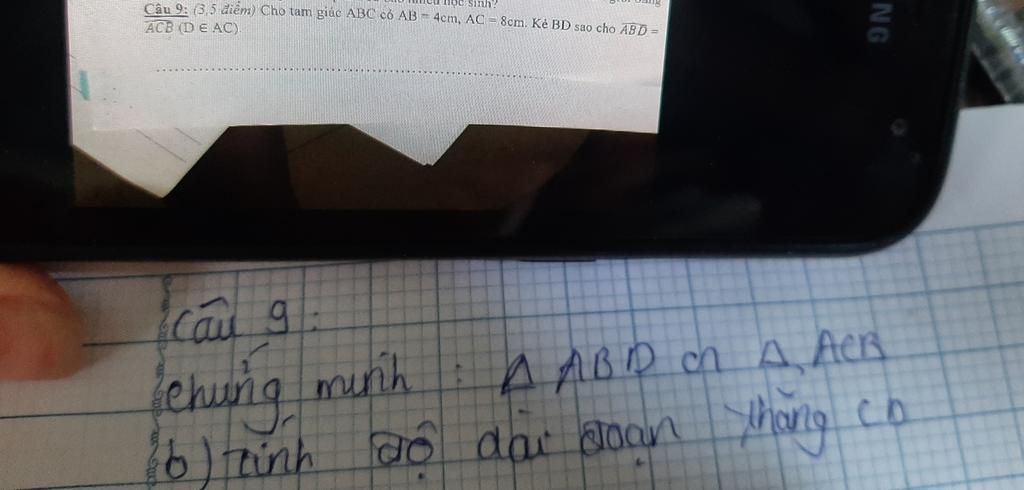 nhiêu học sinh?
Câu 9: (3,5 điểm) Cho tam giác ABC có AB = 4cm, AC = 8cm. Kẻ BD sao cho ABD =
ACB (D ∈ AC)
NG
Câu 9:
chứng minh : Δ ABD ഗ Δ ACB
b) tính độ dài đoạn thẳng CD